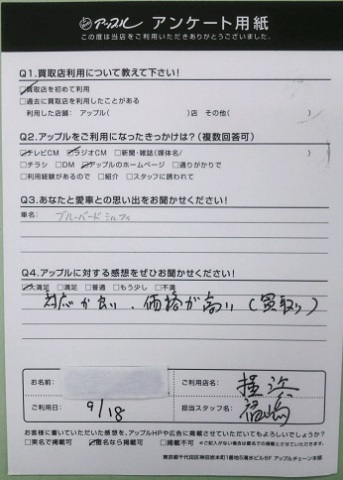 アップル アンケート用紙
この度は当店をご利用いただきありがとうございました。
Q1.買取店利用について教えて下さい!
☑買取店を初めて利用
□過去に買取店を利用したことがある
利用した店舗: アップル( )店 その他( )
Q2.アップルをご利用になったきっかけは?(複数回答可)
☑テレビCM ☑ラジオCM □新聞・雑誌(媒体名/ )
□チラシ □DM ☑アップルのホームページ □通りがかりで
□利用経験があるので □紹介 □スタッフに誘われて
Q3.あなたと愛車との思い出をお聞かせください!
車名: ブルーバードシルフィ
Q4.アップルに対する感想をぜひお聞かせください!
☑大満足 □満足 □普通 □もう少し □不満
対応が良い、価格が高い(買取り)
お名前: ご利用店名:
ご利用日: 9/18 担当スタッフ名: 福嶋
お客様に書いていただいた感想を、アップルHPや広告に掲載させていただいてもよろしいでしょうか?
□実名で掲載可 ☑匿名なら掲載可 □掲載不可 ※ご記入がない場合は匿名での掲載とさせていただきます。
東京都千代田区神田岩本町1番地5清水ビル5F アップルチェーン本部